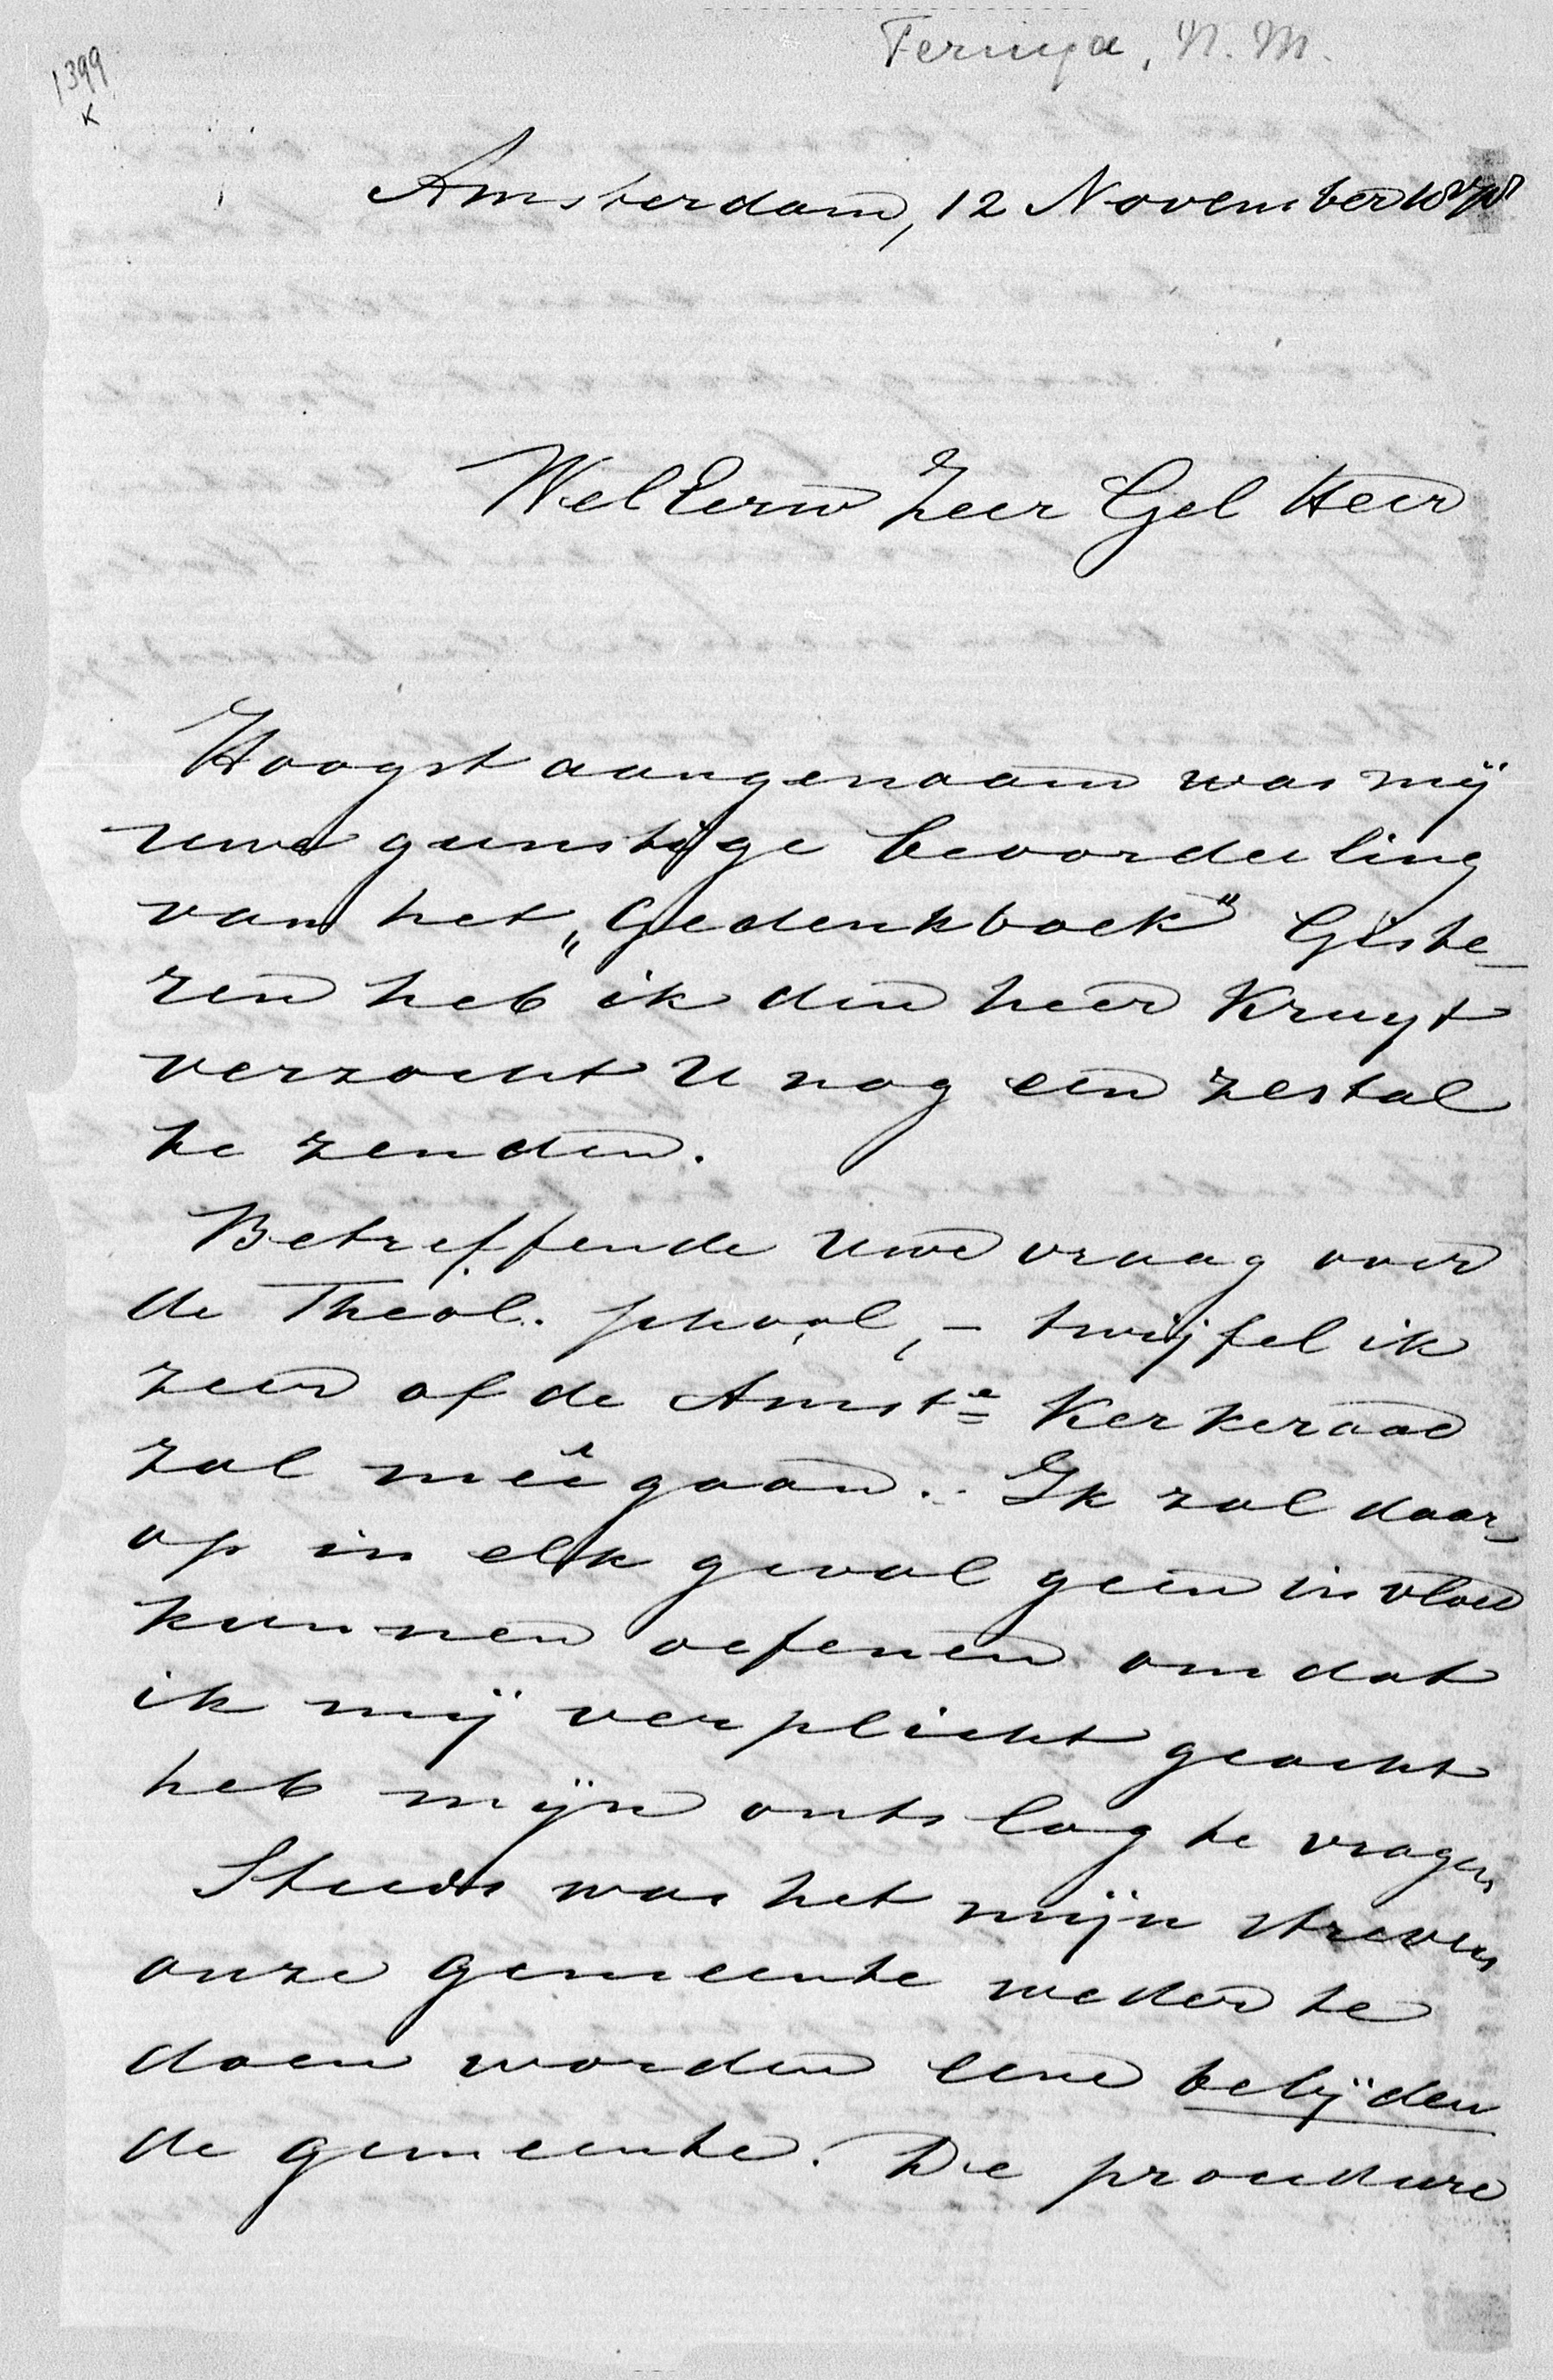 Feringa, N. M.
1399
K
Amsterdam, 12 November 1878
WelEerw Zeer Gel Heer
Hoogst aangenaam was mij
uwe gunstige beoordeeling
van het „Gedenkboek” Giste-
ren heb ik den heer Kruyt
verzocht U nog een zestal
te zenden.
Betreffende Uwe vraag over
de Theol. school, – twijfel ik
zeer of de Amste Kerkeraad
zal meêgaan. Ik zal daar-
op in elk geval geen invloed
kunnen oefenen omdat
ik mij verplicht geacht
heb mijn ontslag te vragen
Steeds was het mijn streven
onze gemeente weder te
doen worden eene belijden
de gemeente. De procedure